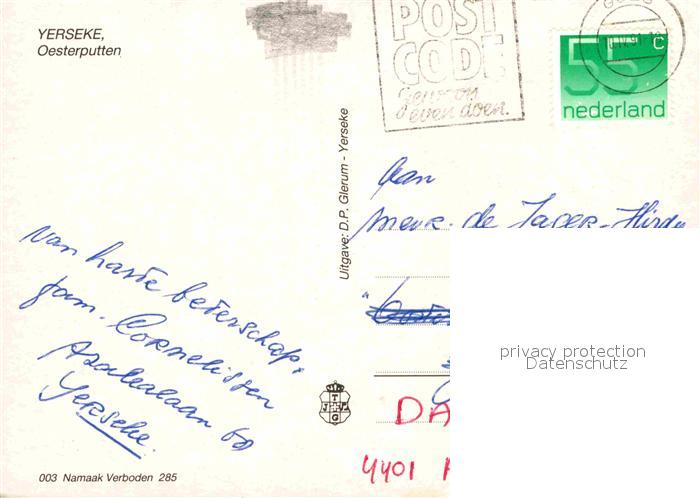 YERSEKE,
Oesterputten
POST
CODE
Gewoon
even doen.
55 c
nederland
Uitgave: D.P. Glerum - Yerseke
Aan
Mevr. de Jager-
van harte beterschap.
fam. Cornelissen
Azalealaan 60
Yerseke.
privacy protection
Datenschutz
DA
4401
003 Namaak Verboden 285